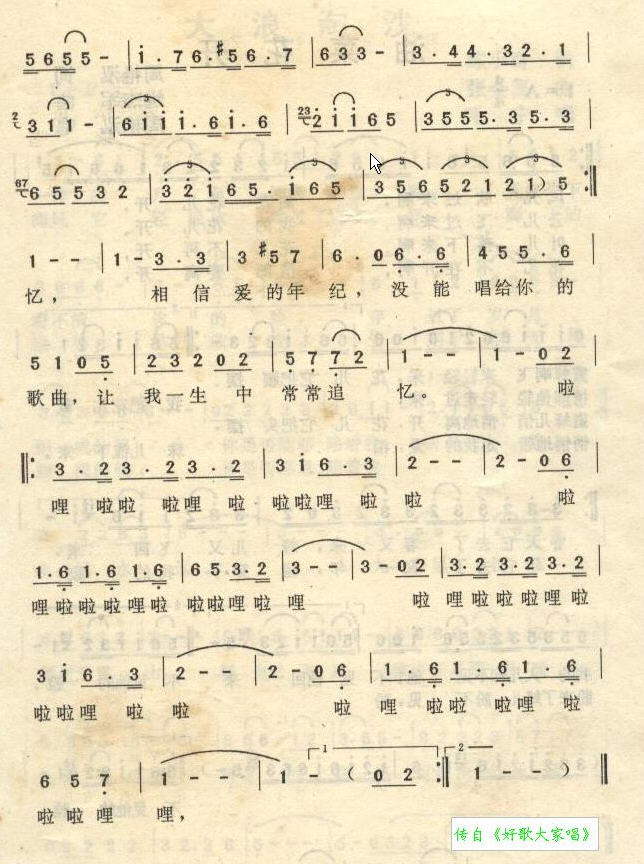 5655- | i.76.#56.7 | 633- | 3.44.32.1 |
311- | 6iii.6i.6 | 2ii65 | 3555.35.3 |
655332 | 32i65.i65 | 356521 21)5 :||
1-- | 1-3.3 | 3#57 | 6.06.6 | 455.6 |
忆， 相信 爱的年纪，没能 唱给你的
5105 | 23202 | 5772 | 1-- | 1-02 |
歌曲，让 我生中 常常追 忆。 啦
||: 3.23.23.2 | 3i6.3 | 2-- | 2-06 |
哩 啦啦 啦哩 啦 啦啦哩 啦 啦 啦
1.61.61.6 | 653.2 | 3-- | 3-02 | 3.23.23.2 |
哩啦啦啦哩啦 啦啦哩啦 哩 啦 哩啦啦啦哩啦
3i6.3 | 2-- | 2-06 | 1.61.61.6 |
啦啦哩 啦 啦 啦 哩 啦啦 啦哩 啦
657 | 1-- | 1-(02 :|| 1--) ||
啦啦哩 哩，
传自《好歌大家唱》